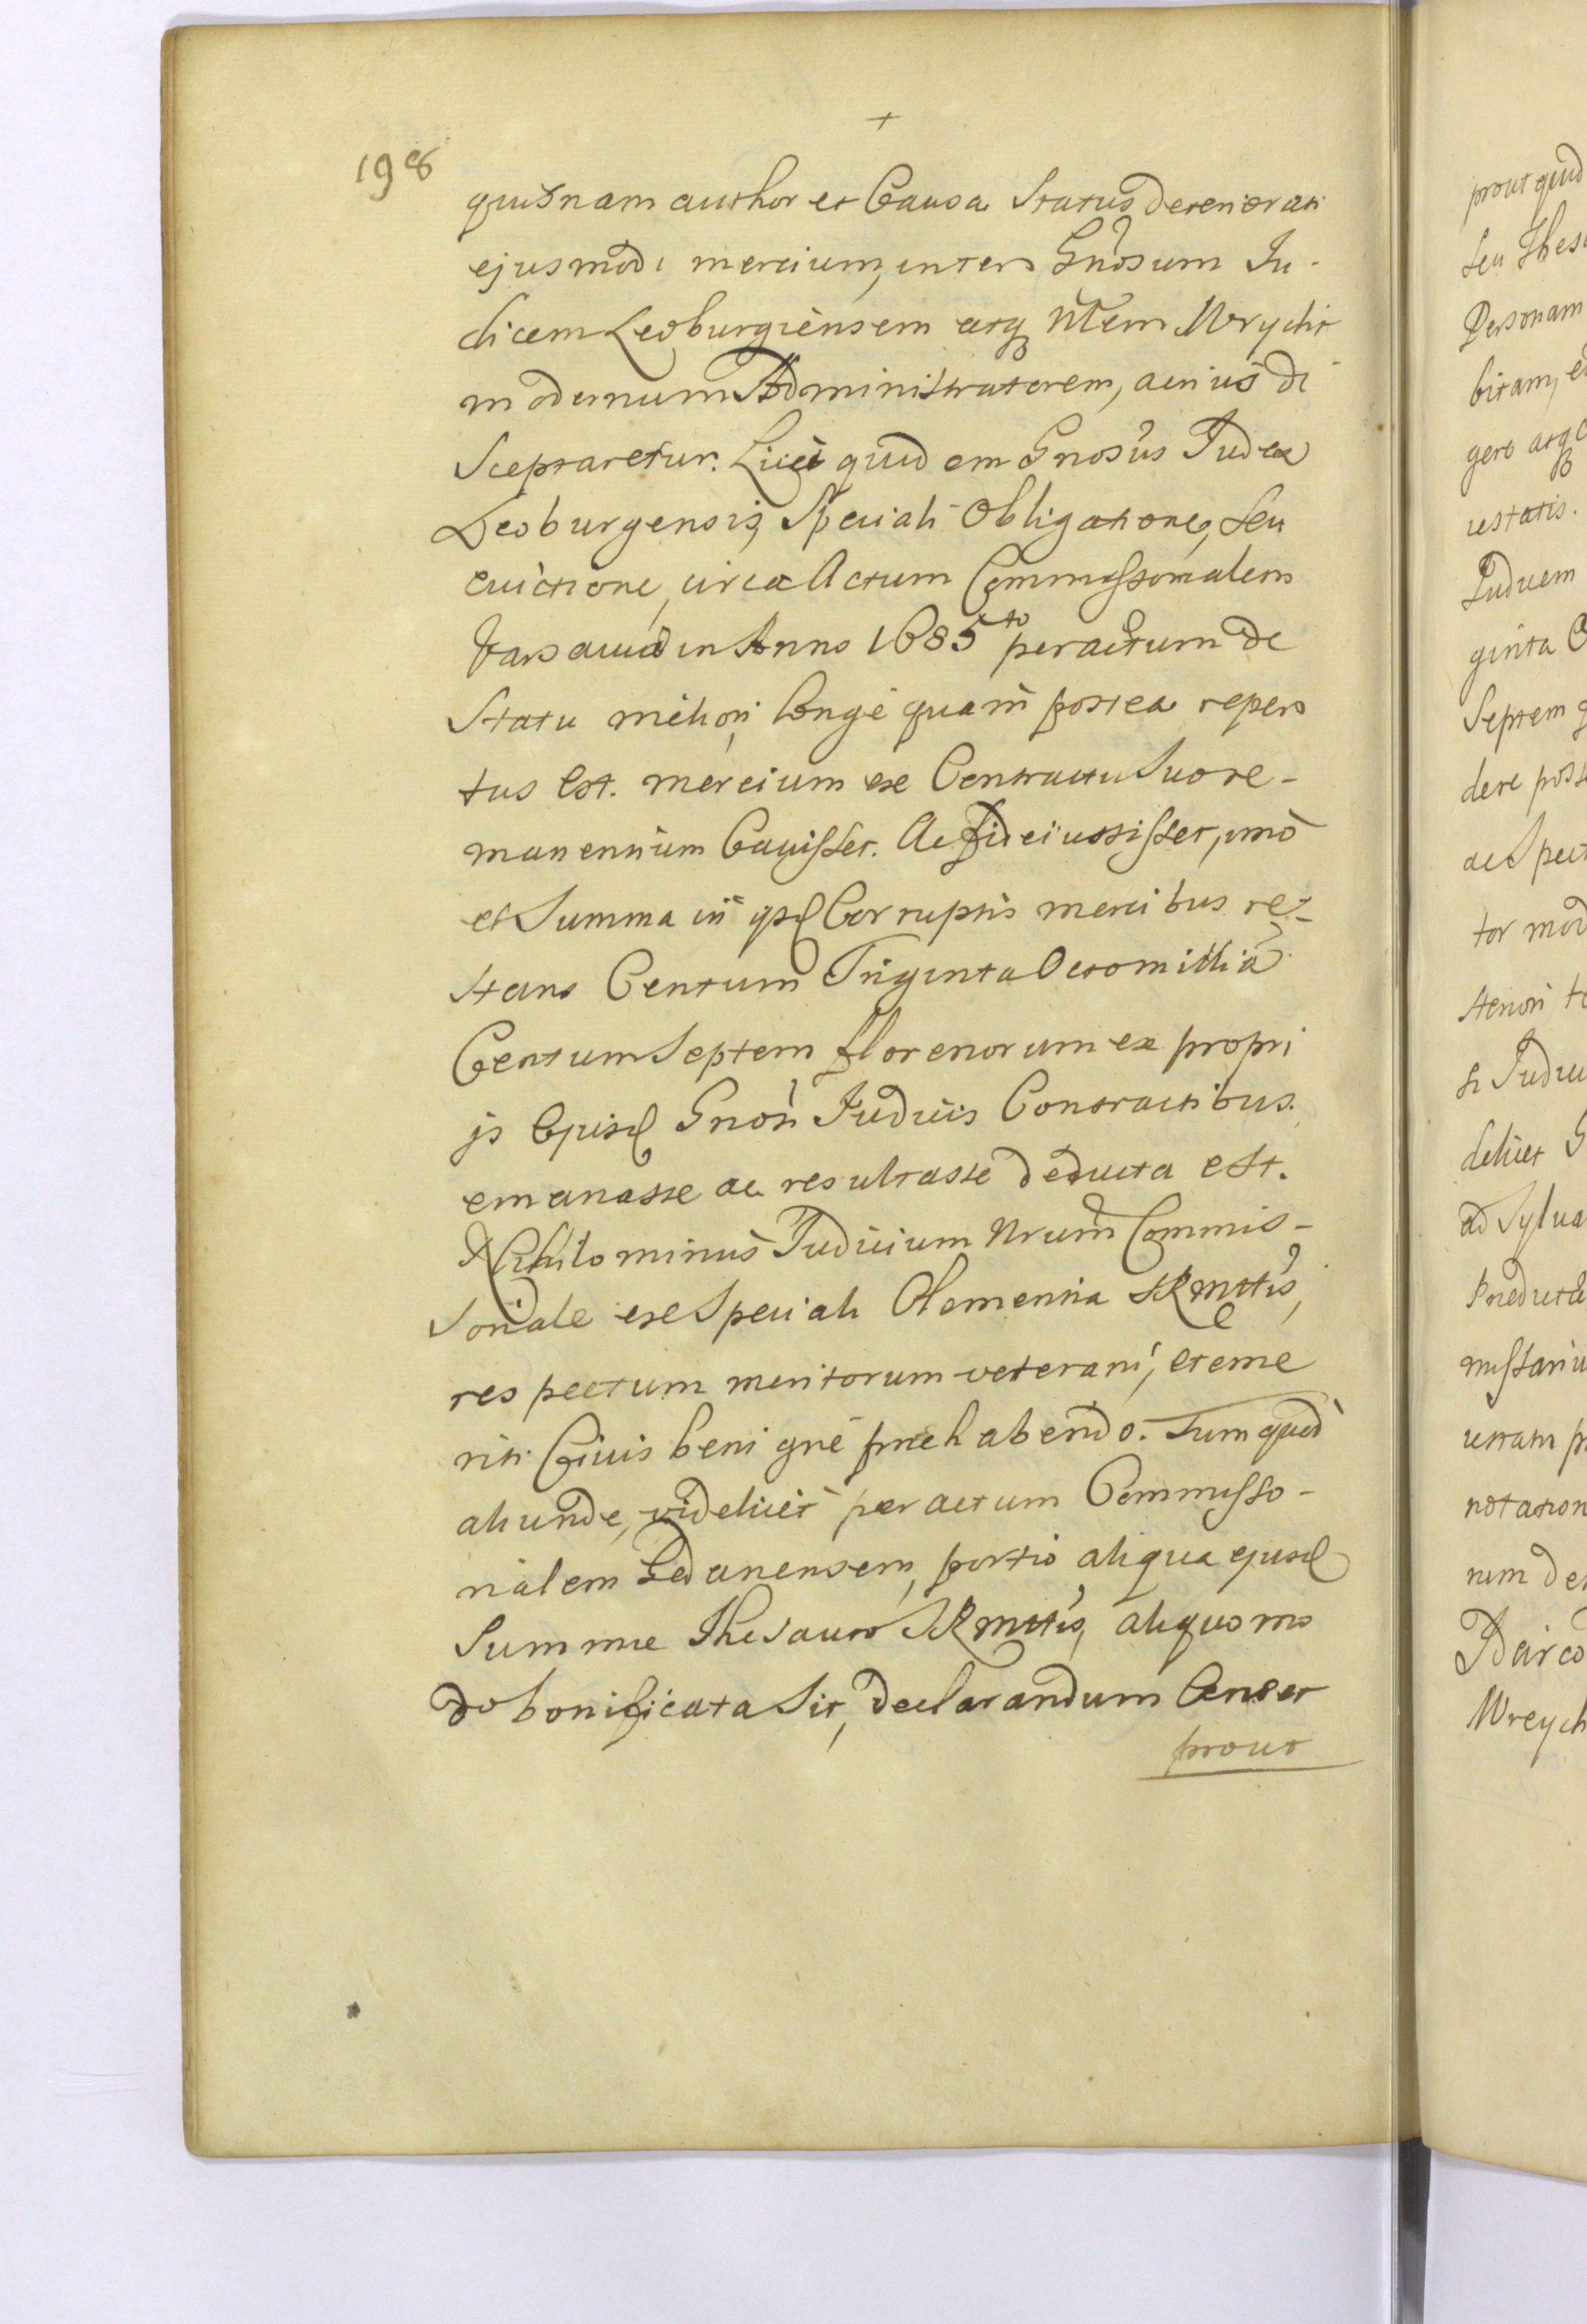 +
198
quisnam author et Causa Status deteriorati
ejusmodi mercium, inter Gnosum Iu-
dicem Leoburgiensem atq Nlem Wrycht
modernum Administratorem, acrius di
Sceptaretur. Licet quidem Gnosus Iudex
Leoburgensis, Speciali Obligatione, seu
evictione, circa Actum Commissorialem
Varsaviae in Anno 1685to peractum de
Statu meliori, longe quam postea reper
tus est. mercium ex Contractu Suo re-
manentium Cavisset. Ac fideiussisset, imo
et Summa in ipsis Corruptis mercibus re-
stans Centum Triginta Octo millia
Centum Septem florenorum ex propri
js Ejusd Gnosi Iudicis Contractibus
emanasse ac resultasse deducta est.
Nihilominus Iudicium Nrum Commis-
soriale ex Speciali Clementia SRMttis,
respectum meritorum veterani, et eme
riti Civis benigne praehabendo. Tum quod
aliunde, videlicet per actum Commisso-
rialem Gedanensem, portio aliqua ejusd
Summae Thesauro SRMttis, aliquo mo
do bonificata sit, declarandum Censet
prout
prout quid
seu Thes
Personam
bitam, e
gere atq
testatis.
Iudicem
ginta
Septem
dere poss
ac Spect
tor mod
steriori
si Iudic
delicet G
ad Sylva
Praedictae
missariu
notation
rum de
Wreych